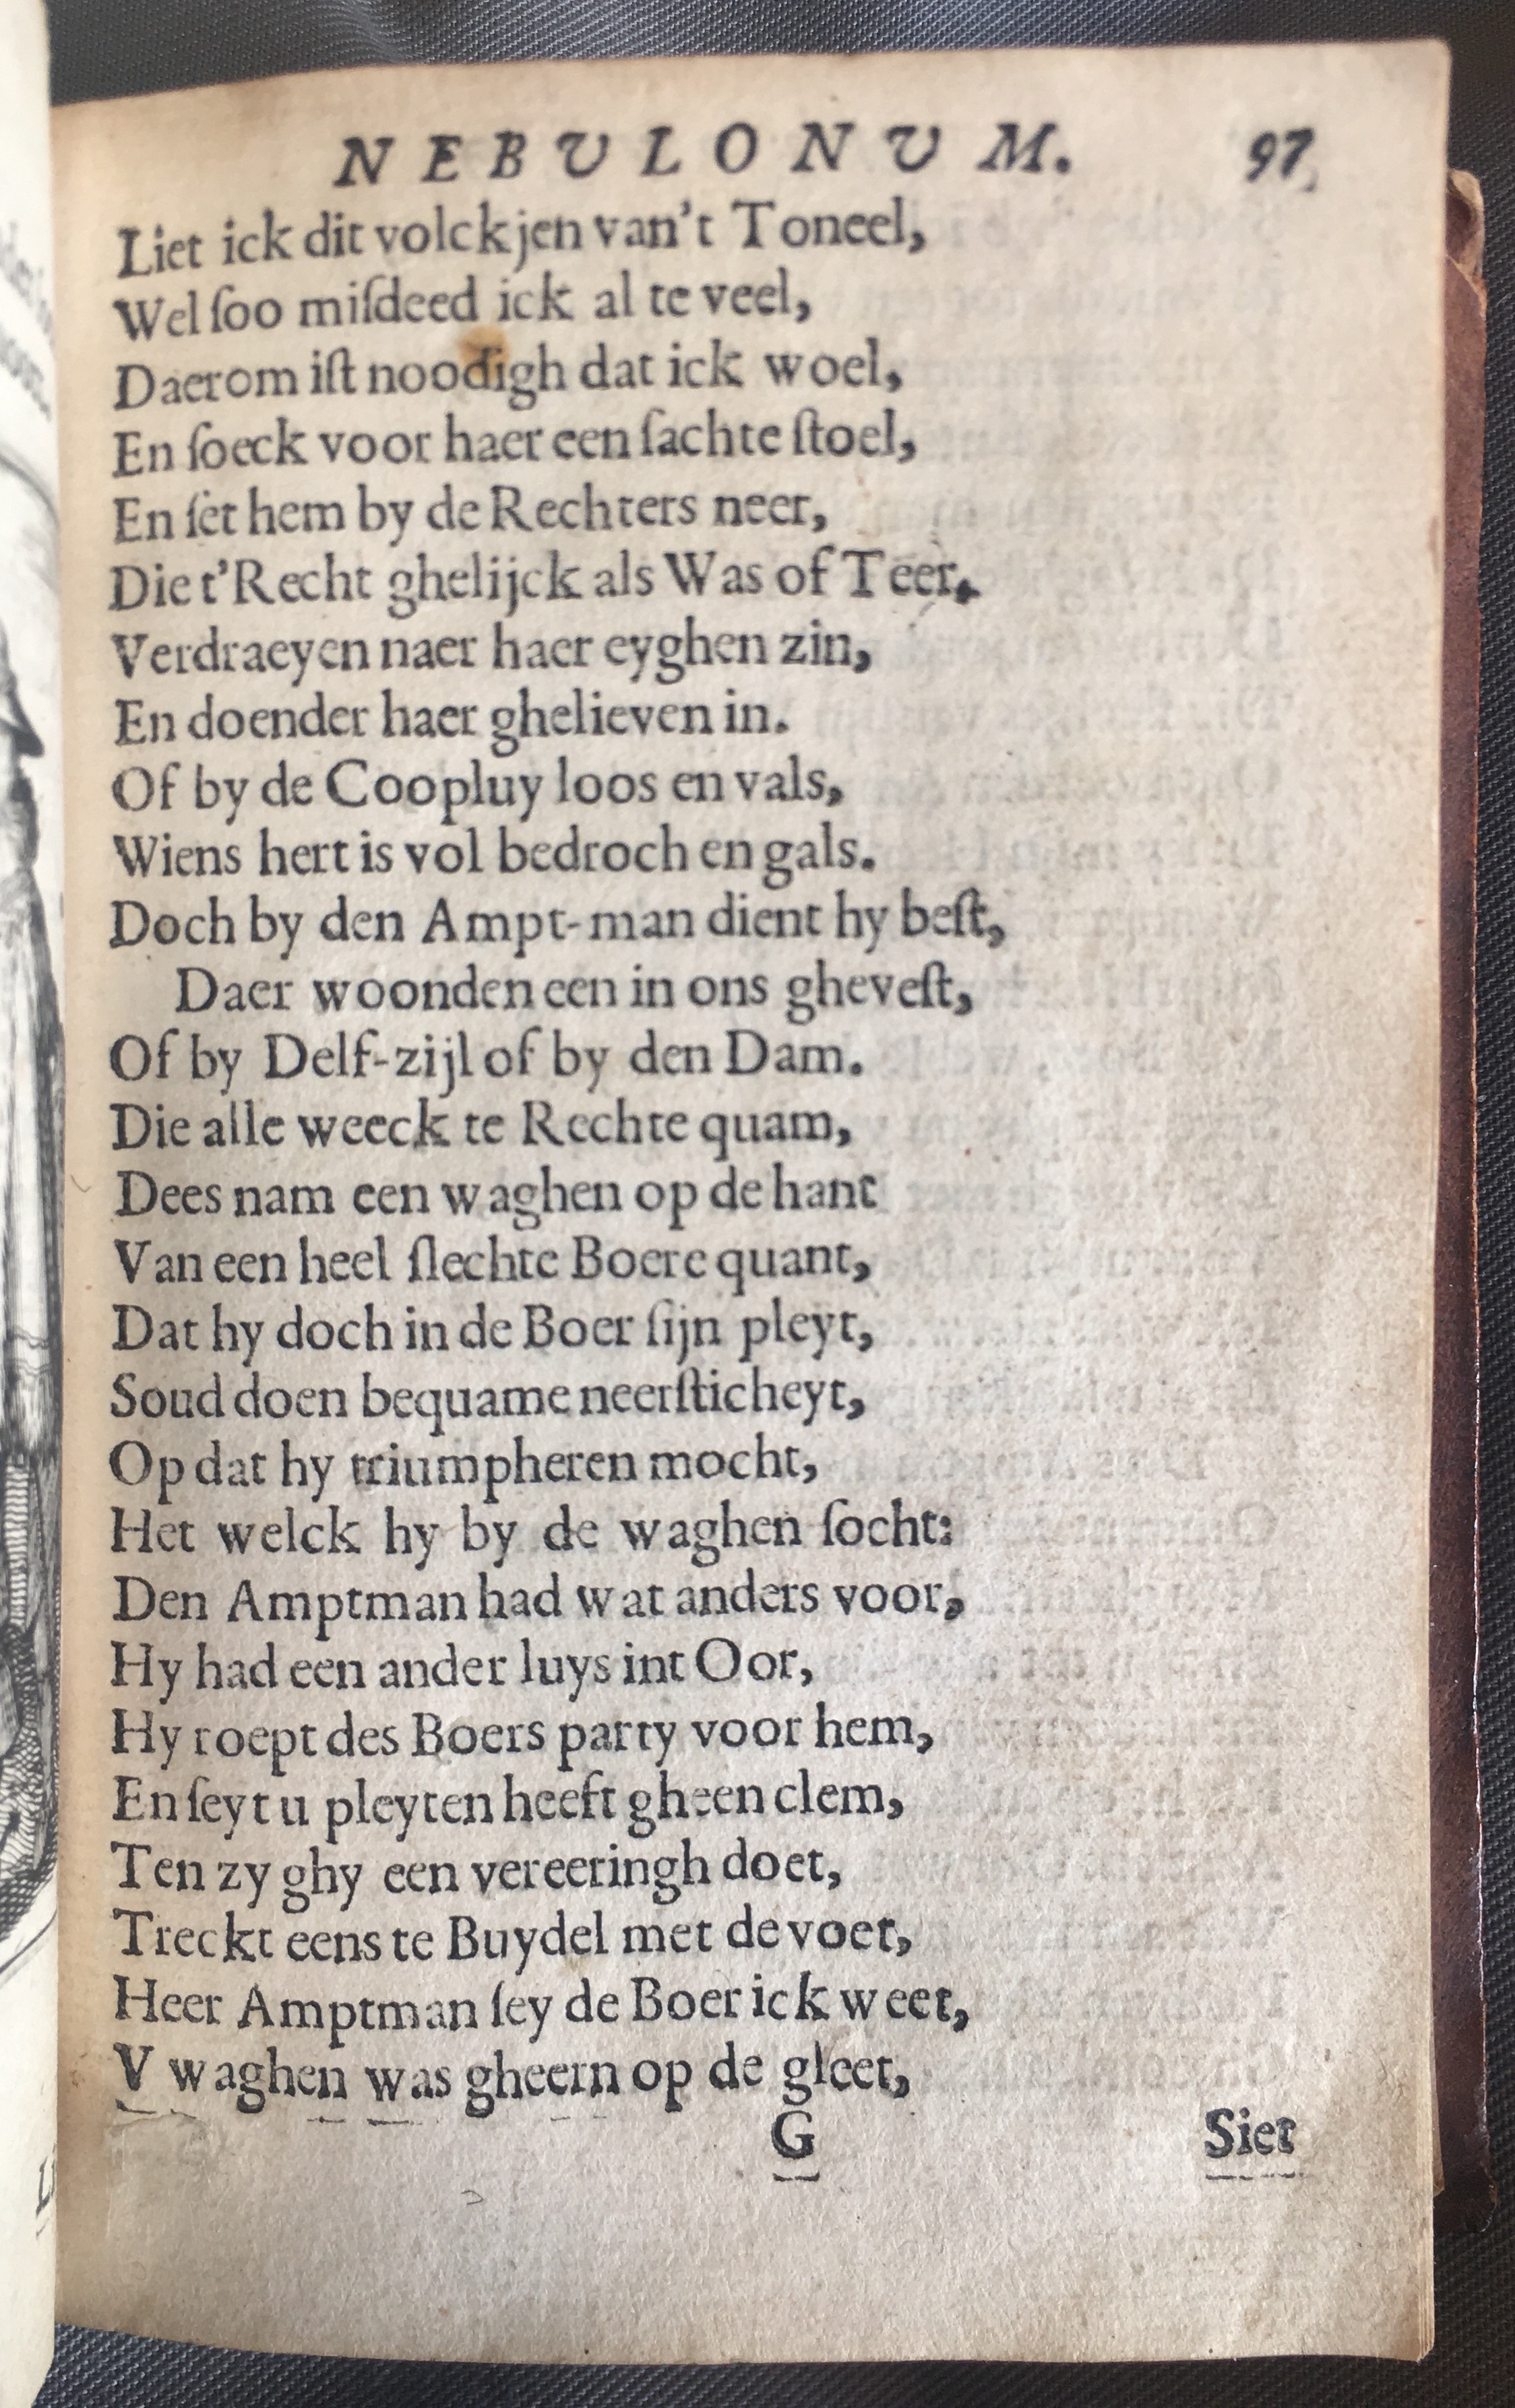 NEBULONUM. 97
Liet ick dit volckjen van't Toneel,
Wel ſoo miſdeed ick al te veel,
Daerom iſt noodigh dat ick woel,
En ſoeck voor haer een ſachte ſtoel,
En ſet hem by de Rechters neer,
Die t'Recht ghelijck als Was of Teer,
Verdraeyen naer haer eyghen zin,
En doender haer ghelieven in.
Of by de Coopluy loos en vals,
Wiens hert is vol bedroch en gals.
Doch by den Ampt-man dient hy beſt,
Daer woonden een in ons gheveſt,
Of by Delf-zijl of by den Dam.
Die alle weeck te Rechte quam,
Dees nam een waghen op de hant
Van een heel ſlechte Boere quant,
Dat hy doch in de Boer ſijn pleyt,
Soud doen bequame neerſticheyt,
Op dat hy triumpheren mocht,
Het welck hy by de waghen ſocht:
Den Amptman had wat anders voor,
Hy had een ander luys int Oor,
Hy roept des Boers party voor hem,
En ſeyt u pleyten heeft gheen clem,
Ten zy ghy een vereeringh doet,
Treckt eens te Buydel met de voet,
Heer Amptman ſey de Boer ick weet,
V waghen was gheern op de gleet,
G Siet